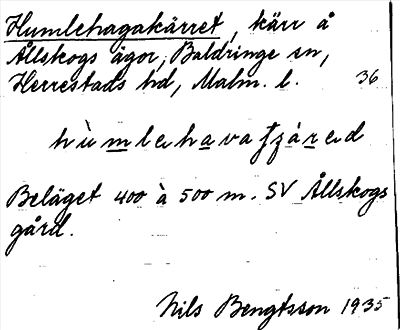 Humlehagakärret, kärr å
Ållskogs ägor, Baldringe sn,
Herrestads hd, Malm. l. 36
hùmlehavatjáred
Beläget 400 à 500 m. SV Ållskogs
gård.
Nils Bengtsson 1935